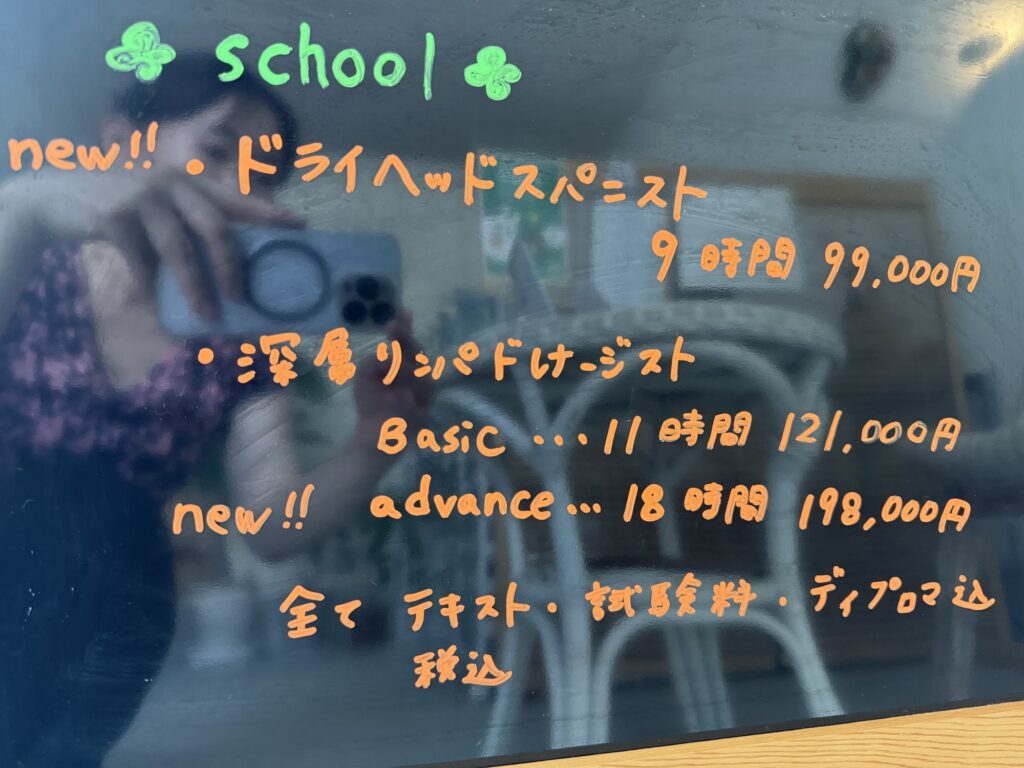 school
new!! ・ドライヘッドスパニスト
9時間 99,000円
・深層リンパドレナージスト
Basic ... 11時間 121,000円
new!! advance... 18時間 198,000円
全て テキスト・試験料・ディプロマ込
税込